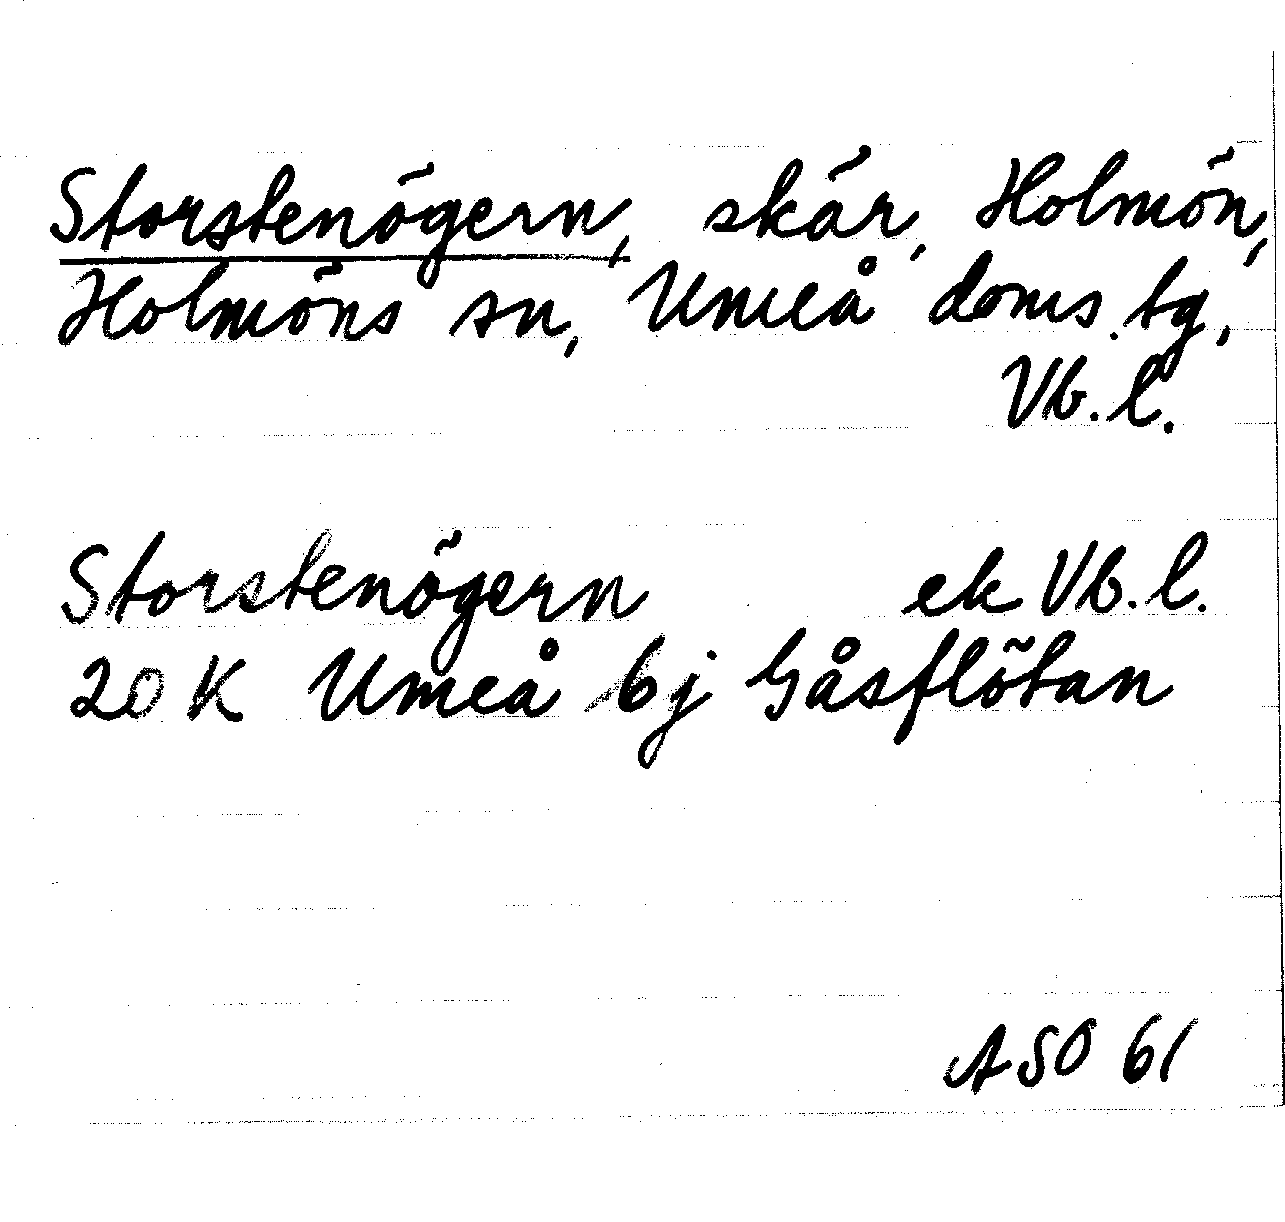 Storstenögern, skär, Holmön,
Holmöns sn, Umeå doms. tg,
Vb. l.
Storstenögern ek Vb. l.
20 K Umeå 6j Gåsflötan
ASO 61